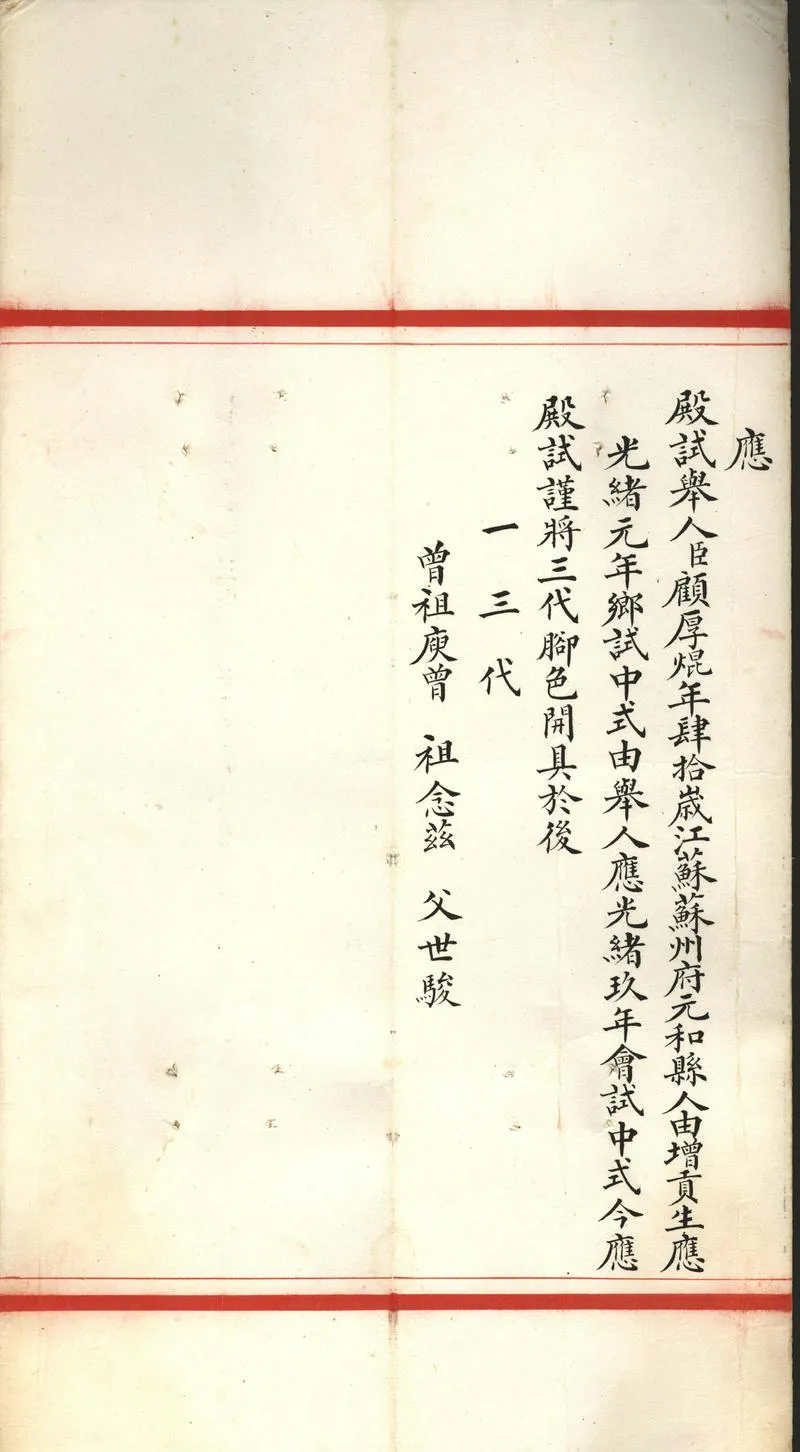 應
殿試舉人臣顧厚焜年肆拾歲江蘇蘇州府元和縣人由增貢生應
光緒元年鄉試中式由舉人應光緒玖年會試中式今應
殿試謹將三代腳色開具於後
一三代
曾祖庚曾 祖念茲 父世駿